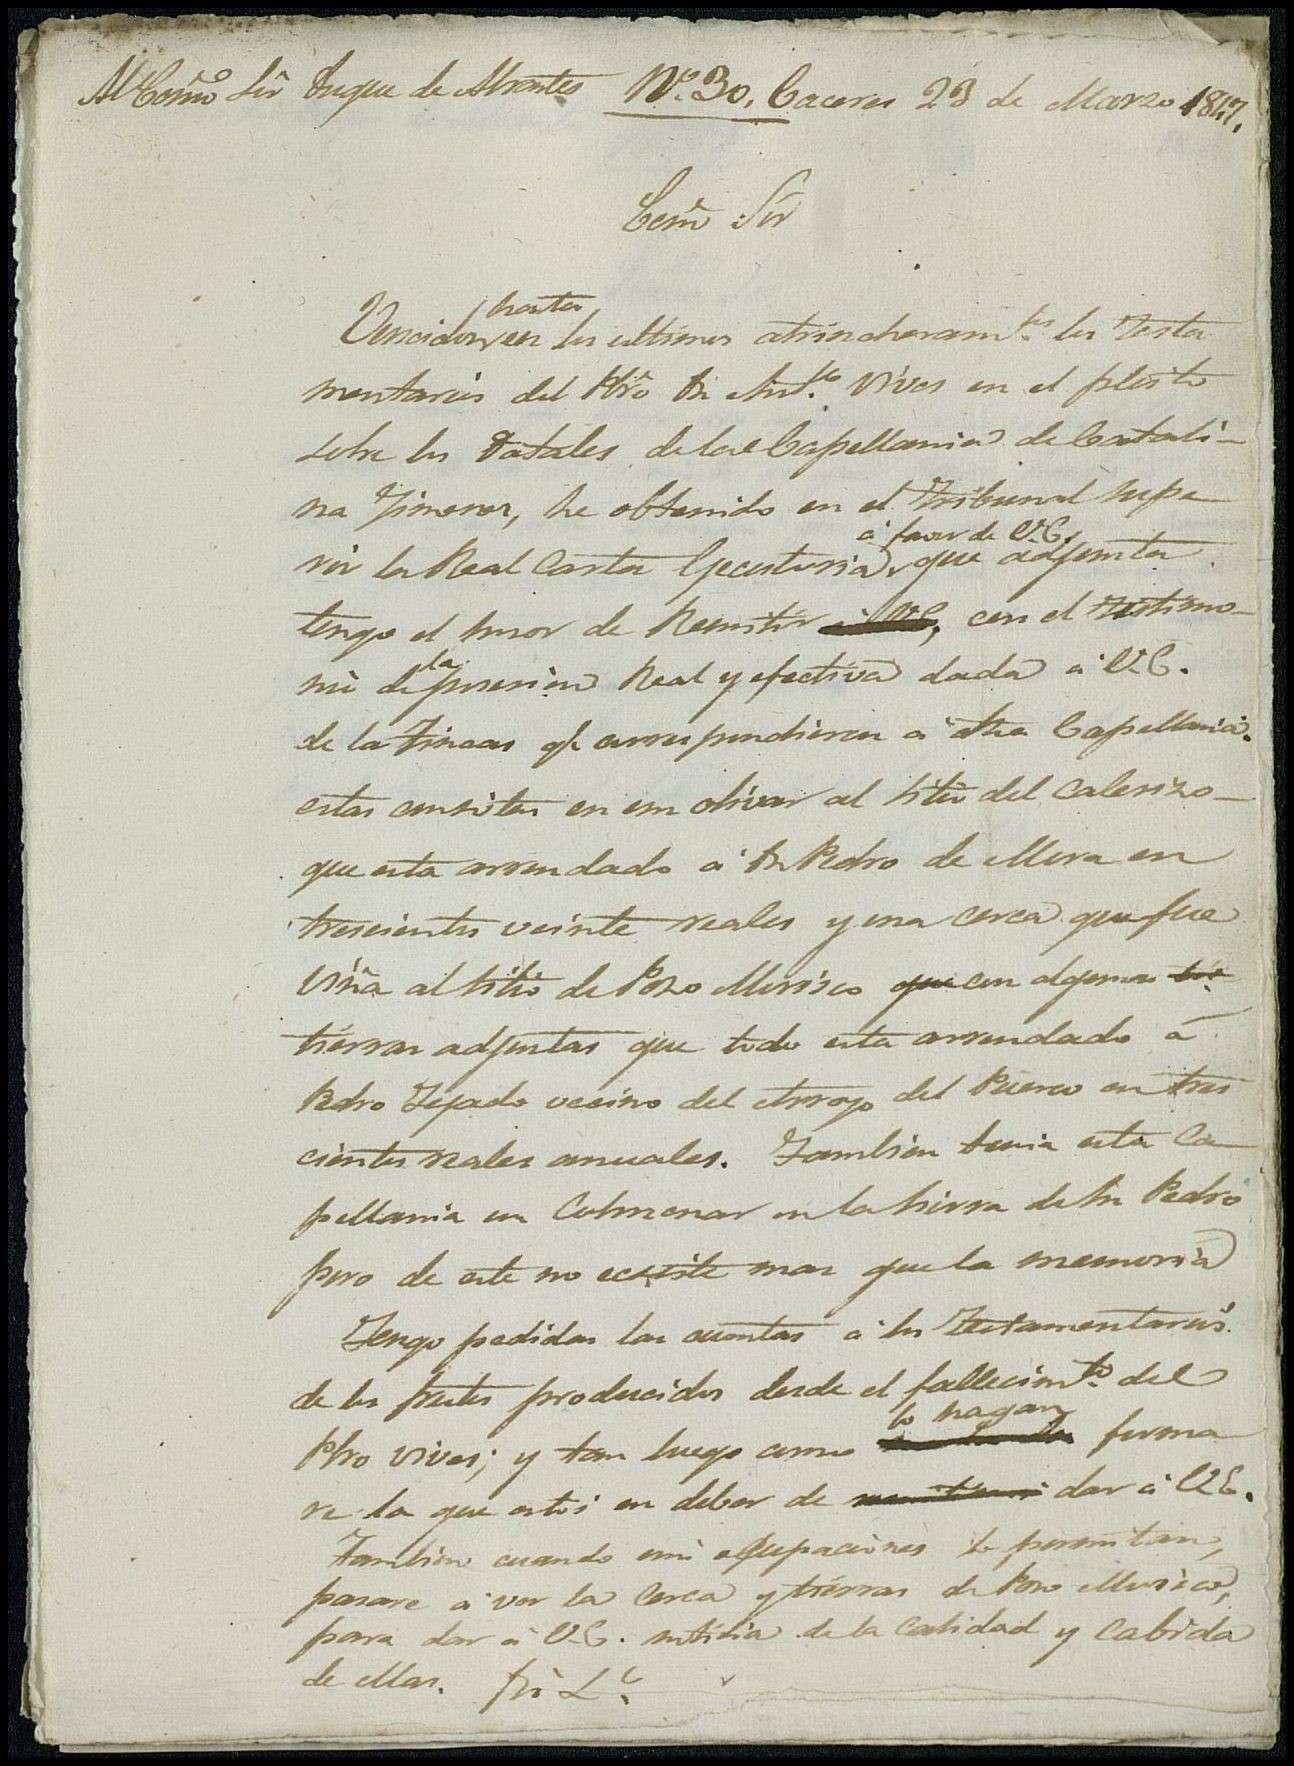 Al Excmo Sôr Duque de Abrantes Nº. 30. Caceres 23 de Marzo 1847.
Excmo Sôr
hasta
Vencidos en los ultimos atrincheramtos los Testa
mentarios del Pbro Dn Anto. Vives en el pleito
sobre los Vatales de la Capellania de Catali-
na Jimenez, he obtenido en el Tribunal supe
á favor de V.E.
rior la Real Carta Egecutoria, que adjunta
tengo el honor de Remitir á V.E., con el testimo-
la
nio de posesion Real y efectiva dada á V.E.
de la Fincas q. correspondieron á dha Capellania.
estas consisten en un olivar al sitio del Calerizo-
que esta arrendado á Dn Pedro de Mera en
trescientos veinte reales y una cerca que fue
Viña al sitio de Pozo Morisco que con algunas tie
tierras adjuntas que todo esta arrendado á
Pedro Tejado vecino del Arroyo del Puerco en tres
cientos reales anuales. Tambien tenia esta Ca
pellania un Colmenar en la sierra de Sn Pedro
pero de este no ecsiste mas que la memoria
Tengo pedidas las cuentas á los Testamentarios
de los frutos producidos desde el fallecimto. del
lo hagan
Pbro Vives; y tan luego como forma
re la que estoi en deber de dar á V.E.
Tambien cuando mis ocupaciones lo permitan,
pasare á ver la cerca y tierras de Pozo Morisco,
para dar á V.E. noticia de la calidad y cabida
de ellas.